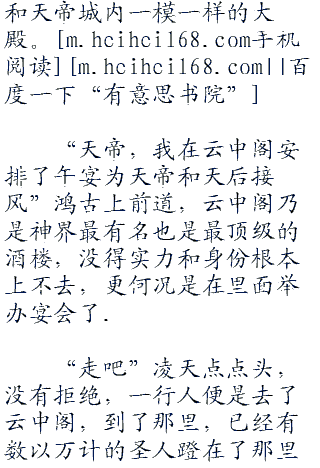 和天帝城内一模一样的大
殿。[m.hcihcil68.com手机
阅读][m.hcihcil68.com||百
度一下“有意思书院”]
“天帝，我在云中阁安
排了午宴为天帝和天后接
风”鸿古上前道，云中阁乃
是神界最有名也是最顶级的
酒楼，没得实力和身份根本
上不去，更何况是在里面举
办宴会了.
“走吧”凌天点点头，
没有拒绝，一行人便是去了
云中阁，到了那里，已经有
数以万计的圣人蹬在了那里